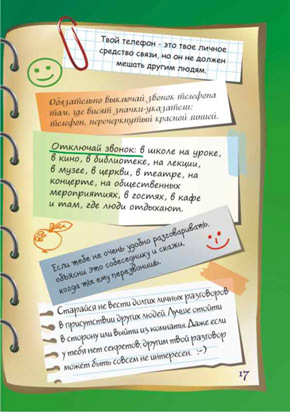 Твой телефон - это твое личное
средство связи, но он не должен
мешать другим людям.
Обязательно выключай звонок телефона
там, где висят значки-указатели:
телефон, перечеркнутый красной линией.
Отключай звонок: в школе на уроке,
в кино, в библиотеке, на лекции,
в музее, в церкви, в театре, на
концерте, на общественных
мероприятиях, в гостях, в кафе
и там, где люди отдыхают.
Если тебе не очень удобно разговаривать,
объясни это собеседнику и скажи,
когда ты ему перезвонишь.
Старайся не вести долгих личных разговоров
в присутствии других людей. Лучше отойти
в сторону или выйти из комнаты. Даже если
у тебя нет секретов, другим твой разговор
может быть совсем не интересен. :-)
17